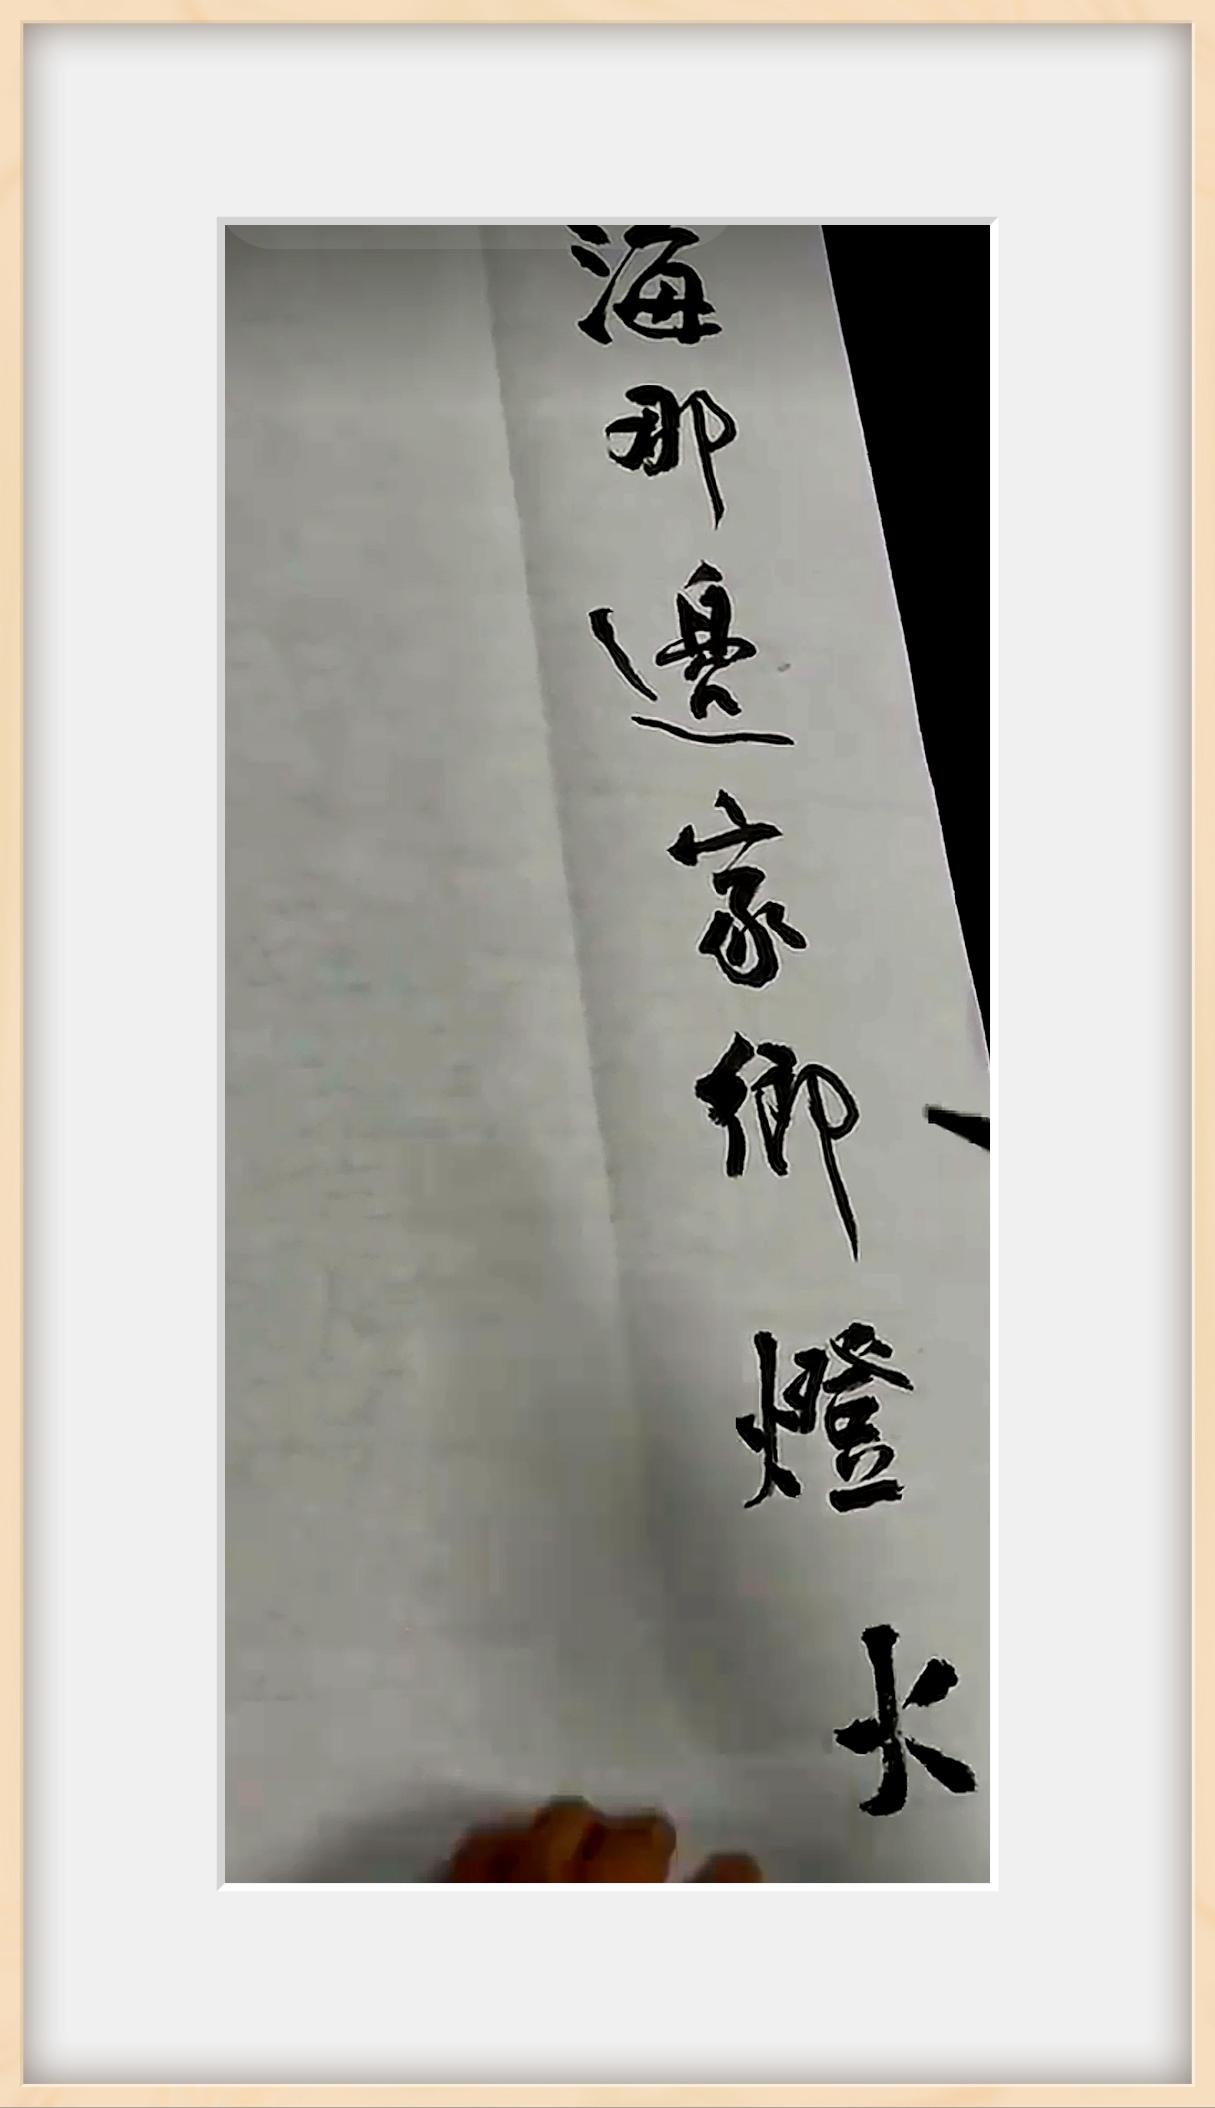 海那邊家鄉燈火